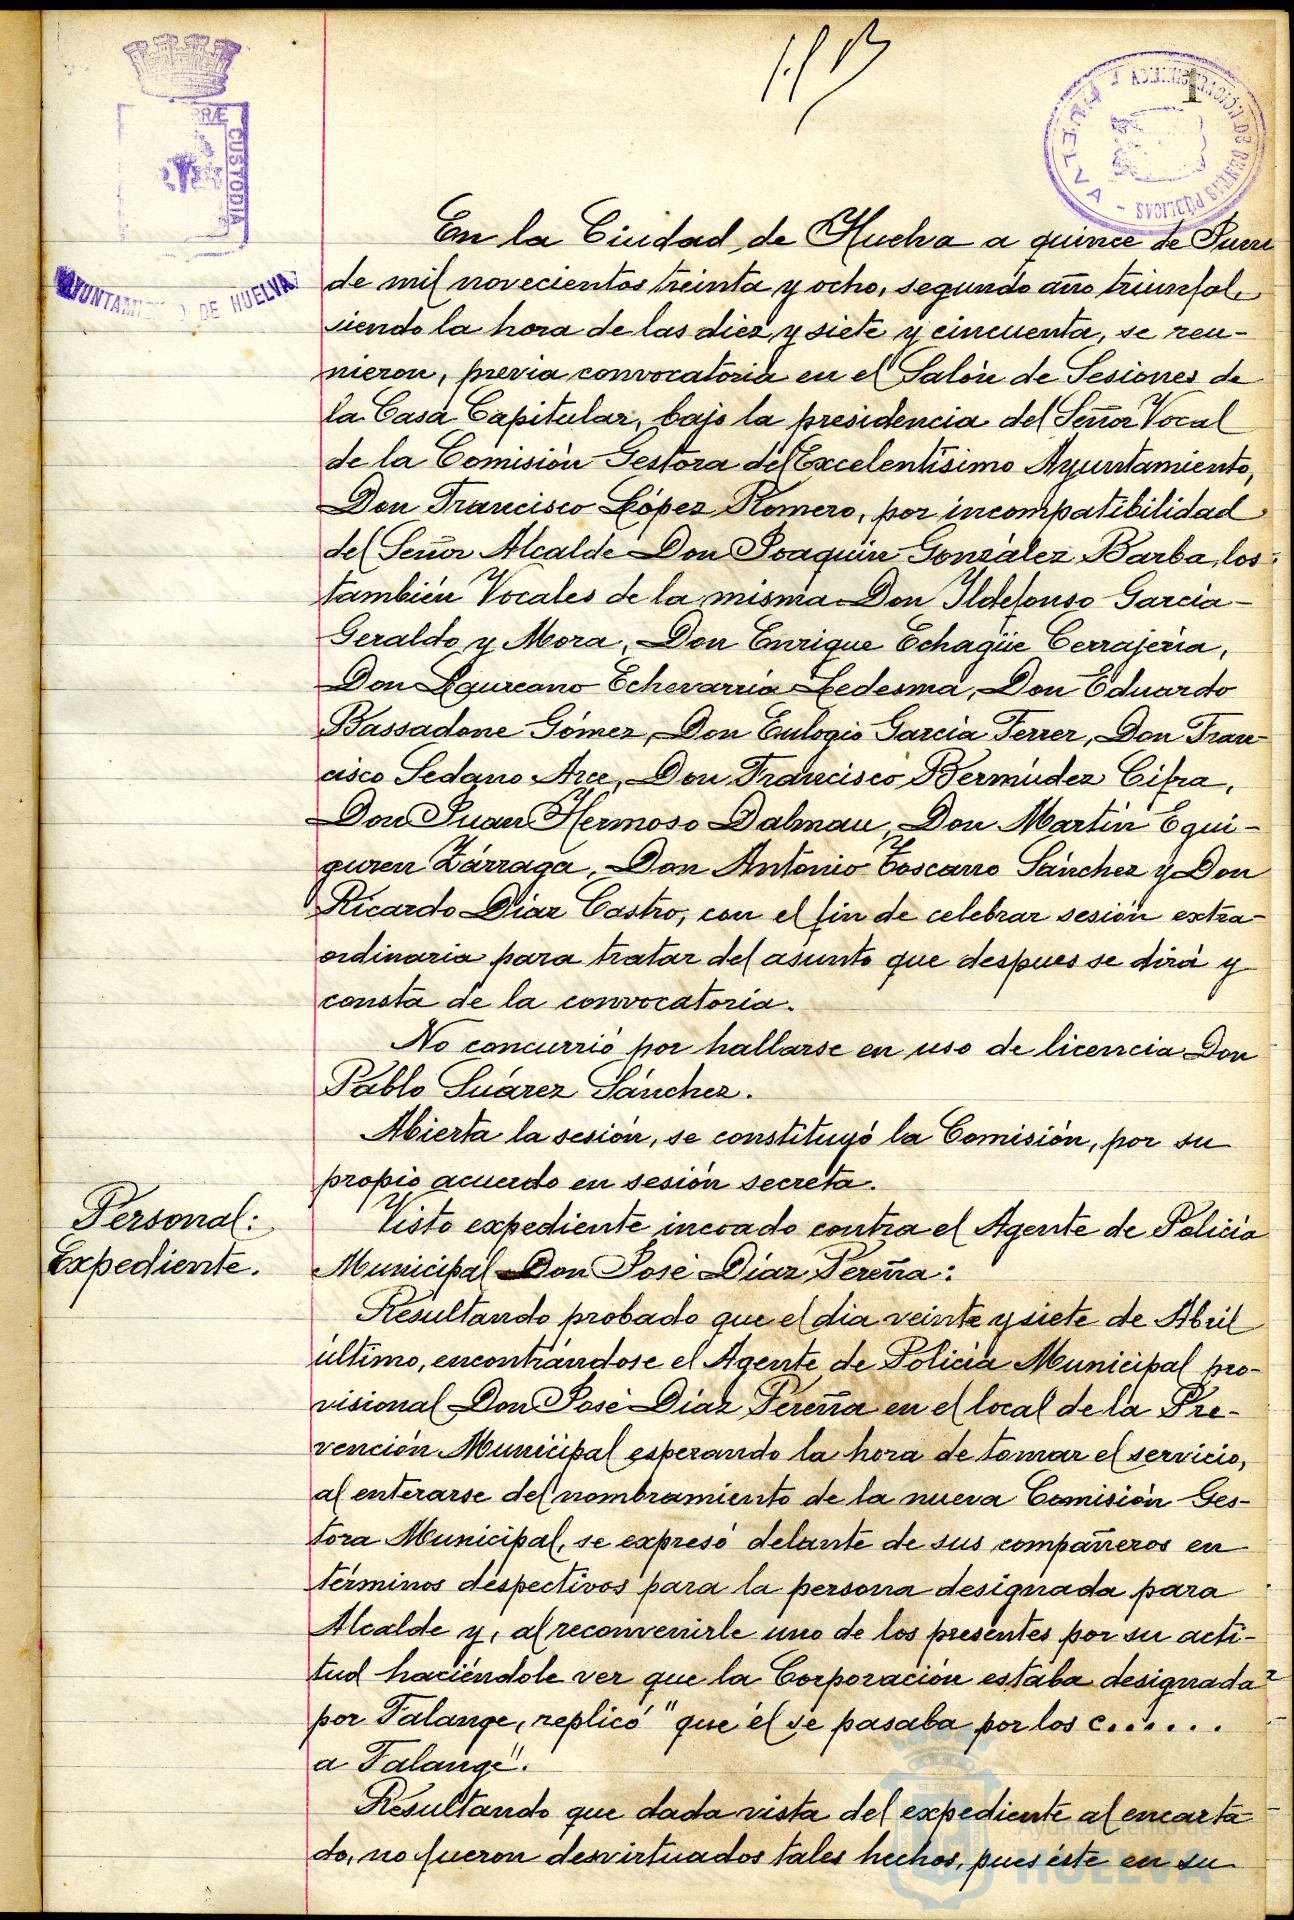 1
RRÆ
CUSTODIA
AYUNTAMIENTO DE HUELVA
HUELVA
En la Ciudad de Huelva a quince de Juni
de mil novecientos treinta y ocho, segundo año triunfal,
siendo la hora de las diez y siete y cincuenta, se reu-
nieron, previa convocatoria en el Salón de Sesiones de
la Casa Capitular, bajo la presidencia del Señor Vocal
de la Comisión Gestora del Excelentísimo Ayuntamiento,
Don Francisco López Romero, por incompatibilidad
del Señor Alcalde Don Joaquín González Barba, los
también Vocales de la misma Don Ildefonso García-
Geraldo y Mora, Don Enrique Echagüe Cerrajería,
Don Laureano Echevarría Ledesma, Don Eduardo
Bassadone Gómez, Don Eulogio García Ferrer, Don Fran-
cisco Sedano Arce, Don Francisco Bermúdez Cifra,
Don Juan Hermoso Dalmau, Don Martín Egui-
guren Zárraga, Don Antonio Toscano Sánchez y Don
Ricardo Díaz Castro, con el fin de celebrar sesión extra-
ordinaria para tratar del asunto que despues se dirá y
consta de la convocatoria.
No concurrió por hallarse en uso de licencia Don
Pablo Suárez Sánchez.
Abierta la sesión, se constituyó la Comisión, por su
propio acuerdo en sesión secreta.
Personal:
Expediente.
Visto expediente incoado contra el Agente de Policía
Municipal Don José Díaz Pereña:
Resultando probado que el día veinte y siete de Abril
último, encontrándose el Agente de Policía Municipal pro-
visional Don José Díaz Pereña en el local de la Pre-
vención Municipal esperando la hora de tomar el servicio,
al enterarse del nombramiento de la nueva Comisión Ges-
tora Municipal, se expresó delante de sus compañeros en
términos despectivos para la persona designada para
Alcalde y, al reconvenirle uno de los presentes por su acti-
tud haciéndole ver que la Corporación estaba designada
por Falange, replicó "que él se pasaba por los c......
a Falange".
Resultando que dada vista del expediente al encarta-
do, no fueron desvirtuados tales hechos, pues éste en su
Ayuntamiento de
HUELVA